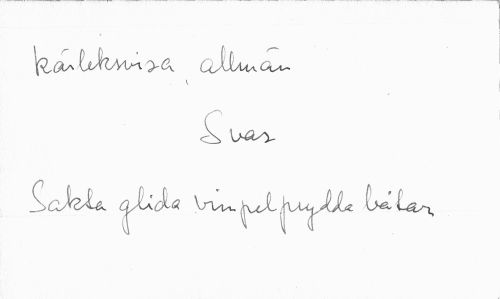 kärleksvisa, allmän
Svar
Sakta glida vimpelprydda båtar